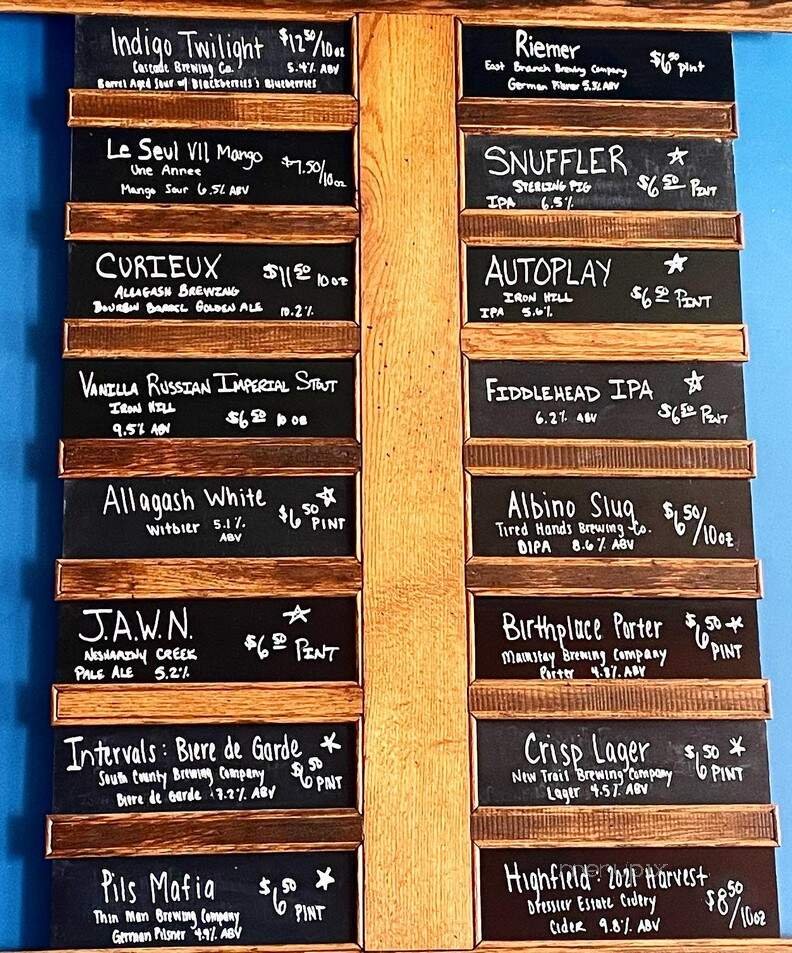 Indigo Twilight $12.50/10 oz
Cascade Brewing Co. 5.4% ABV
Barrel Aged Sour w/ Blackberries & Blueberries
Le Seul VII Mango $7.50/10oz
Une Annee
Mango Sour 6.5% ABV
CURIEUX $11.50 10 oz
ALLAGASH BREWING
BOURBON BARREL GOLDEN ALE 10.2%
VANILLA RUSSIAN IMPERIAL STOUT
IRON HILL $6.50 10 oz
9.5% ABV
Allagash White $6.50 PINT
Witbier 5.1%
ABV
J.A.W.N. $6.50 PINT
NESHAMINY CREEK
PALE ALE 5.2%
Intervals: Biere de Garde $6.50 PINT
South County Brewing Company
Biere de Garde 7.2% ABV
Pils Mafia $6.50 PINT
Thin Man Brewing Company
German Pilsner 4.9% ABV
Riemer $6.50 pint
East Branch Brewing Company
German Pilsner 5.5% ABV
SNUFFLER $6.50 PINT
STERLING PIG
IPA 6.5%
AUTOPLAY $6.50 PINT
IRON HILL
IPA 5.6%
FIDDLEHEAD IPA $6.50 PINT
6.2% ABV
Albino Slug $6.50/10oz
Tired Hands Brewing Co.
DIPA 8.6% ABV
Birthplace Porter $6.50 PINT
Mainstay Brewing Company
Porter 4.8% ABV
Crisp Lager $6.50 PINT
New Trail Brewing Company
Lager 4.5% ABV
menupix
Highfield: 2021 Harvest $8.50/10oz
Dressler Estate Cidery
Cider 9.8% ABV